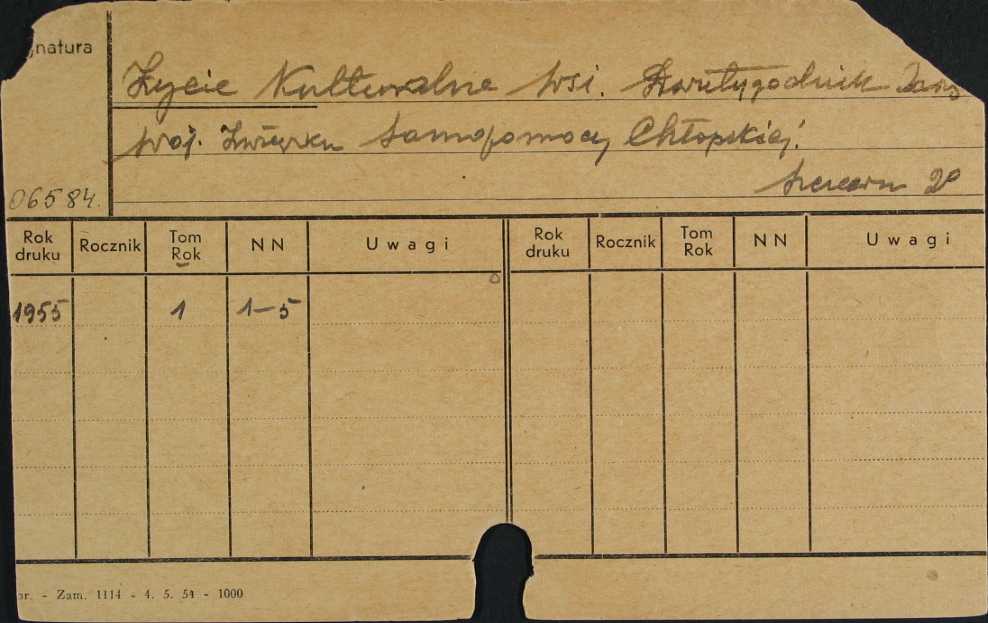 gnatura
Życie Kulturalne Wsi. Dwutygodnik
Woj. Związku Samopomocy Chłopskiej.
06584.
Rok druku Rocznik Tom Rok NN Uwagi Rok druku Rocznik Tom Rok NN Uwagi
1955 1 1-5
- Zam. 1114 - 4. 5. 54 - 1000